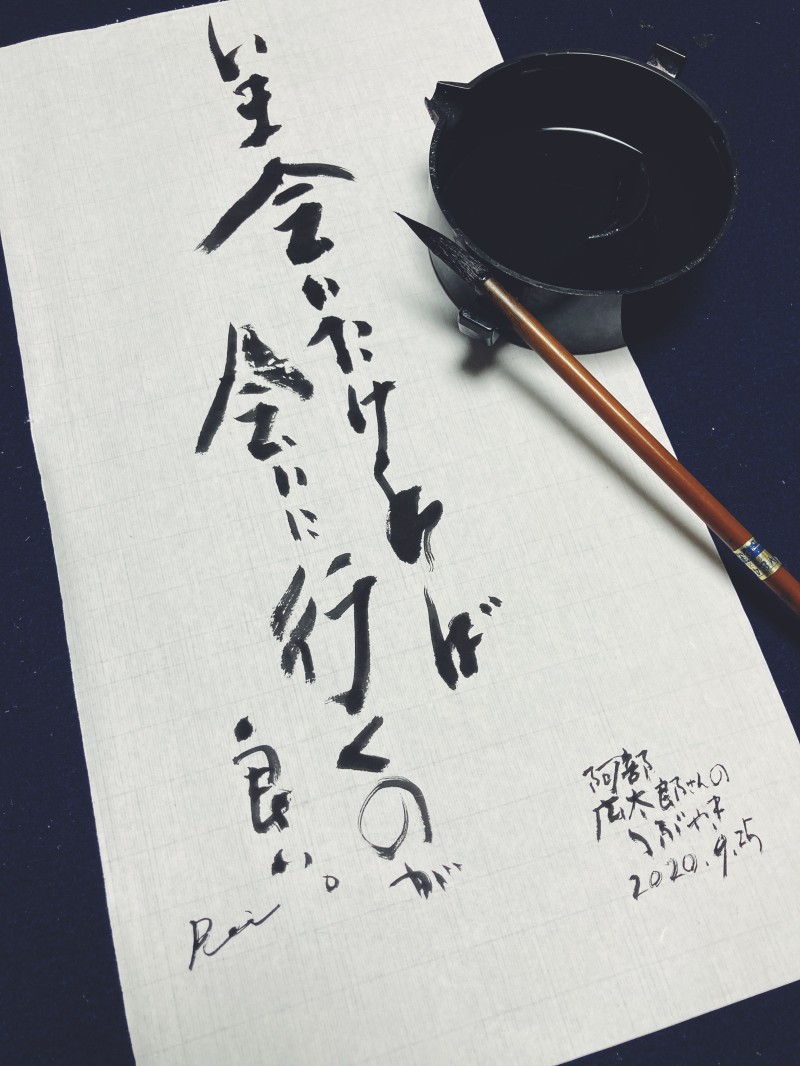 いま
会いたければ
会いに
行くのが
良い。
Rei
阿部
広太郎さんの
つぶやき
2020.9.25